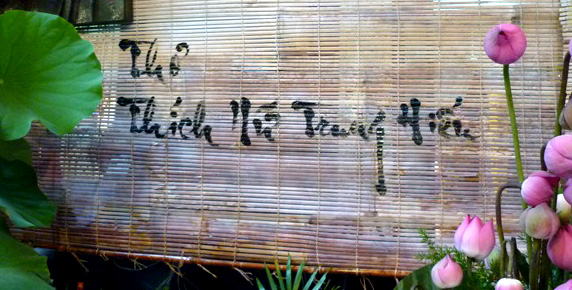 Thơ
Thích Nữ Trung Hiếu